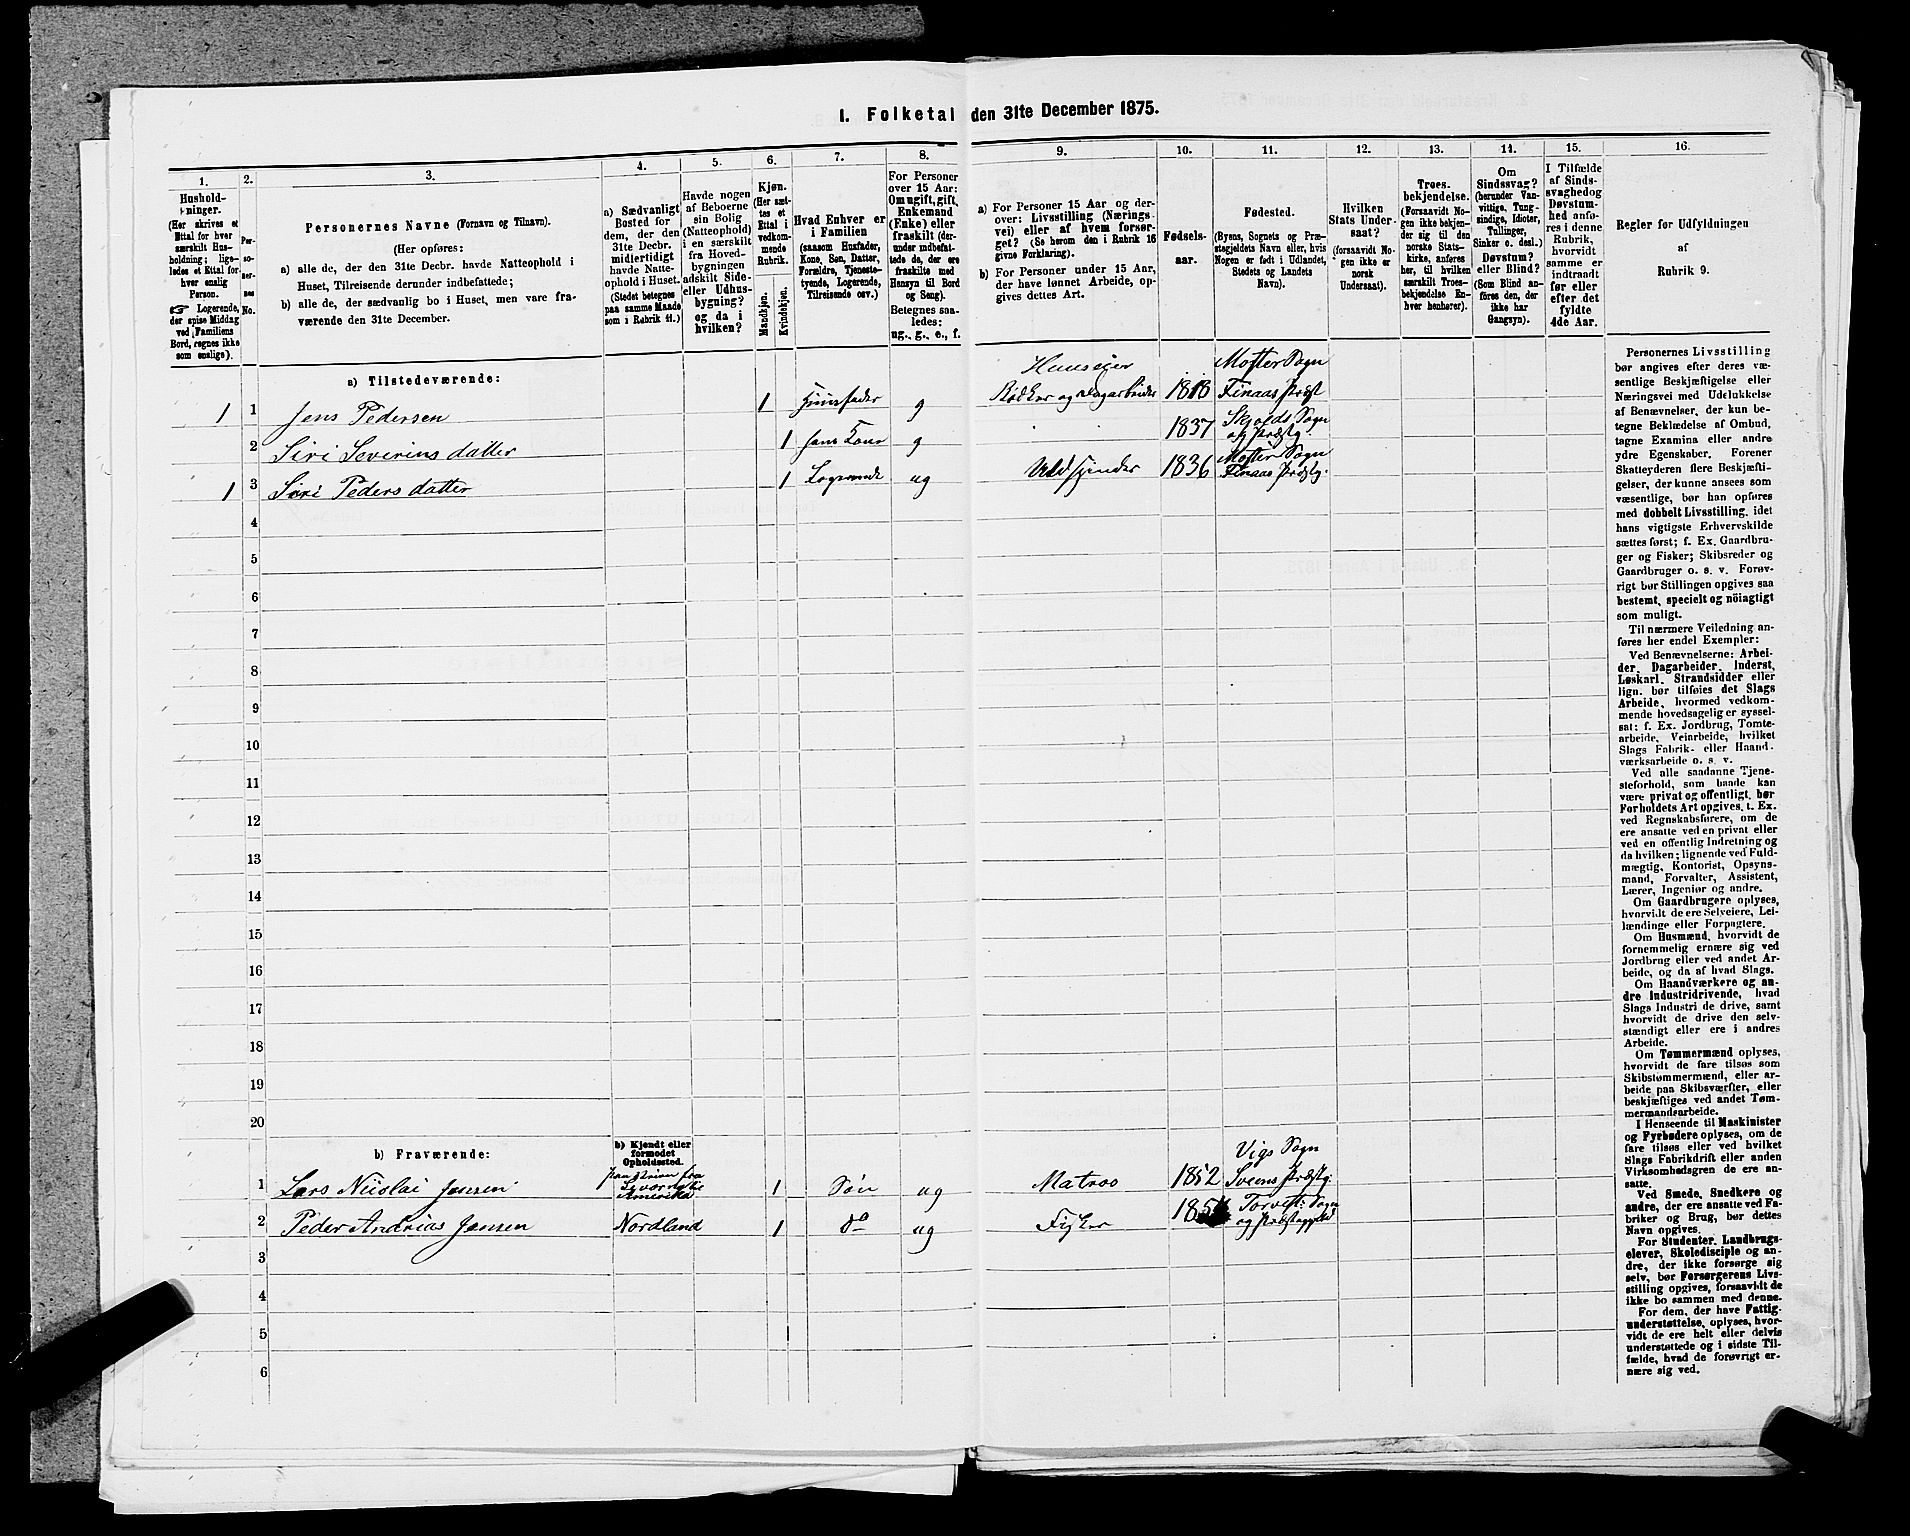 1. Folketal den 31te December 1875.
1.
Hushold-
ninger.
(Her skrives et
Ettal for hver
særskilt Hus-
holdning; lige-
ledes et Ettal for
hver enslig
Person.
☞ Logerende,
der spise Middag
ved Familiens
Bord, regnes ikke
som enslige).
2.
Per-
so-
ner-
nes
No.
3.
Personernes Navne (Fornavn og Tilnavn).
(Her opføres:
a) alle de, der den 31te Decbr. havde Natteophold i
Huset, Tilreisende derunder indbefattede;
b) alle de, der sædvanlig bo i Huset, men vare fra-
værende den 31te December.
4.
a) Sædvanligt
Bosted for
dem, der den
31te Decbr.
midlertidigt
havde Natte-
ophold i Huset.
(Stedet betegnes
paa samme Maade
som i Rubrik 11.)
5.
Havde nogen
af Beboerne
sin Bolig
(Natteophold)
i en særskilt
fra Hoved-
bygningen
adskilt Side-
eller Udhus-
bygning?
og da i
hvilken?
6.
Kjøn.
(Her sæt-
tes et
Ettal i
vedkom-
mende
Rubrik.
Mandkjøn.
Kvindekjøn.
7.
Hvad Enhver er
i Familien
(saasom Husfader,
Kone, Søn, Datter,
Forældre, Tjeneste-
tyende, Logerende,
Tilreisende osv.)
8.
For Personer
over 15 Aar:
Om ugift, gift,
Enkemand
(Enke) eller
fraskilt (der-
under indbefat-
tede de, der ere
fraskilte med
Hensyn til Bord
og Seng).
Betegnes saa-
ledes:
ug., g., e., f.
9.
a) For Personer 15 Aar og der-
over: Livsstilling (Nærings-
vei) eller af hvem forsør-
get? (Se herom den i Rubrik 16
givne Forklaring).
b) For Personer under 15 Aar,
der have lønnet Arbeide, op-
gives dettes Art.
10.
Fødsels-
aar.
11.
Fødested.
(Byens, Sognets og Præ-
stegjeldets Navn eller, hvis
Nogen er født i Udlandet,
Stedets og Landets
Navn).
12.
Hvilken
Stats Under-
saat?
(forsaavidt No-
gen ikke er
norsk
Undersaat).
13.
Troes-
bekjendelse.
(Forsaavidt No-
gen ikke bekjen-
der sig til den
norske Stats-
kirke, anføres
her, til hvilken
særskilt Troes-
bekjendelse En-
hver henhører).
14.
Om
Sindssvag?
(herunder Van-
vittige, Tung-
sindige, Idioter,
Tullinger,
Sinker o. desl.)
Døvstum?
eller Blind?
(Som Blind an-
føres den, der
ikke har
Gangsyn).
15.
I Tilfælde
af Sinds-
svaghed og
Døvstum-
hed anfø-
res i denne
Rubrik,
hvorvidt
samme er
indtraadt
før eller
efter det
fyldte
4de Aar.
16.
Regler for Udfyldningen
af
Rubrik 9.
a) Tilstedeværende:
1 1 Jens Pedersen 1 Huusfader g Huuseier
Bødker og Dagarbeider 1818 Moster Sogn
Finaas Præst
2 Siri Severins datter 1 hans Kone g 1837 Skjolds Sogn
og Præstg.
1 3 Siri Peders datter 1 Logerende ug Uldspinder 1836 Moster Sogn
Finaas Præstg.
4
5
6
7
8
9
10
11
12
13
14
15
16
17
18
19
20
b) Fraværende:
b) Kjendt eller
formodet
Opholdssted.
1 Lars Nicolai Jensen 
Amerika 1 Søn ug Matros 1852 Vigs Sogn
Præstg.
2 Peder Andreas Jensen Nordland 1 do ug Fisker Sogn
og Præstegjeld
3
4
5
6
Personernes Livsstilling
bør angives efter deres væ-
sentlige Beskjæftigelse eller
Næringsvei med Udelukkelse
af Benævnelser, der kun be-
tegne Beklædelse af Ombud,
tagne Examina eller andre
ydre Egenskaber. Forener
Skatteyderen flere Beskjæfti-
gelser, der kunne ansees som
væsentlige, bør han opføres
med dobbelt Livsstilling, idet
hans vigtigste Erhvervskilde
sættes først; f. Ex. Gaardbru-
ger og Fisker; Skibsreder og
Gaardbruger o. s. v. Forøv-
rigt bør Stillingen opgives saa
bestemt, specielt og nöiagtigt
som muligt.
Til nærmere Veiledning an-
føres her endel Exempler:
Ved Benævnelserne: Arbei-
der, Dagarbeider, Inderst,
Løskarl, Strandsidder eller
lign. bør tilføies det Slags
Arbeide, hvormed vedkom-
mende hovedsagelig er syssel-
sat; f. Ex. Jordbrug, Tomte-
arbeide, Veiarbeide, hvilket
Slags Fabrik- eller Haand-
værksarbeide o. s. v.
Ved alle saadanne Tjene-
steforhold, som baade kan
være privat og offentligt, bør
Forholdets Art opgives, t. Ex.
ved Regnskabsførere, om de
ere ansatte ved en privat eller
ved en offentlig Indretning og
da hvilken; lignende ved Fuld-
mægtig, Kontorist, Opsyns-
mand, Forvalter, Assistent,
Lærer, Ingeniør og andre.
Om Gaardbrugere oplyses,
hvorvidt de ere Selveiere, Lei-
lændinge eller Forpagtere.
Om Husmænd, hvorvidt de
fornemmelig ernære sig ved
Jordbrug eller ved andet Ar-
beide, og da af hvad Slags.
Om Haandværkere og an-
dre Industridrivende, hvad
Slags Industri de drive, samt
hvorvidt de drive den selv-
stændigt eller ere i andres
Arbeide.
Om Tømmermænd oplyses,
hvorvidt de fare tilsøs som
Skibstømmermænd, eller ar-
beide paa Skibsværfter, eller
beskjæftiges ved andet Tøm-
mermandsarbeide.
I Henseende til Maskinister
og Fyrbødere oplyses, om de
fare tilsøs eller ved hvilket
Slags Fabrikdrift eller anden
Virksomhedsgren de ere an-
satte.
Ved Smede, Snedkere og
andre, der ere ansatte ved Fa-
briker og Brug, bør dettes
Navn opgives.
For Studenter, Landbrugs-
elever, Skoledisciple og an-
dre, der ikke forsørge sig
selv, bør Forsørgerens Livs-
stilling opgives, forsaavidt de
ikke bo sammen med denne.
For dem, der have Fattig-
understøttelse, oplyses, hvor-
vidt de ere helt eller delvis
understøttede og i sidste Til-
fælde, hvad de forøvrigt er-
nære sig ved.